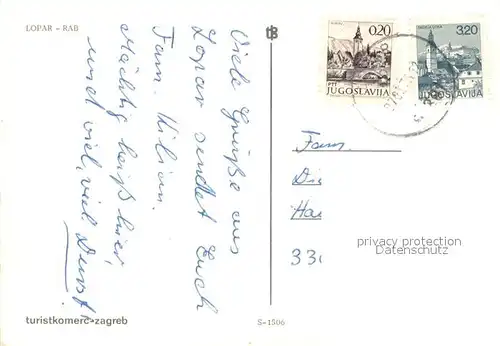 LOPAR - RAB
Viele Grüße aus
Lopar sendet Euch
Fam. Kilian.
Mächtig heiß hier,
und viel, viel Durst!
turistkomerc-zagreb
S-1506
0,20
PTT
JUGOSLAVIJA
3,20
JUGOSLAVIJA
Fam.
Di
Ha
33
privacy protection
Datenschutz